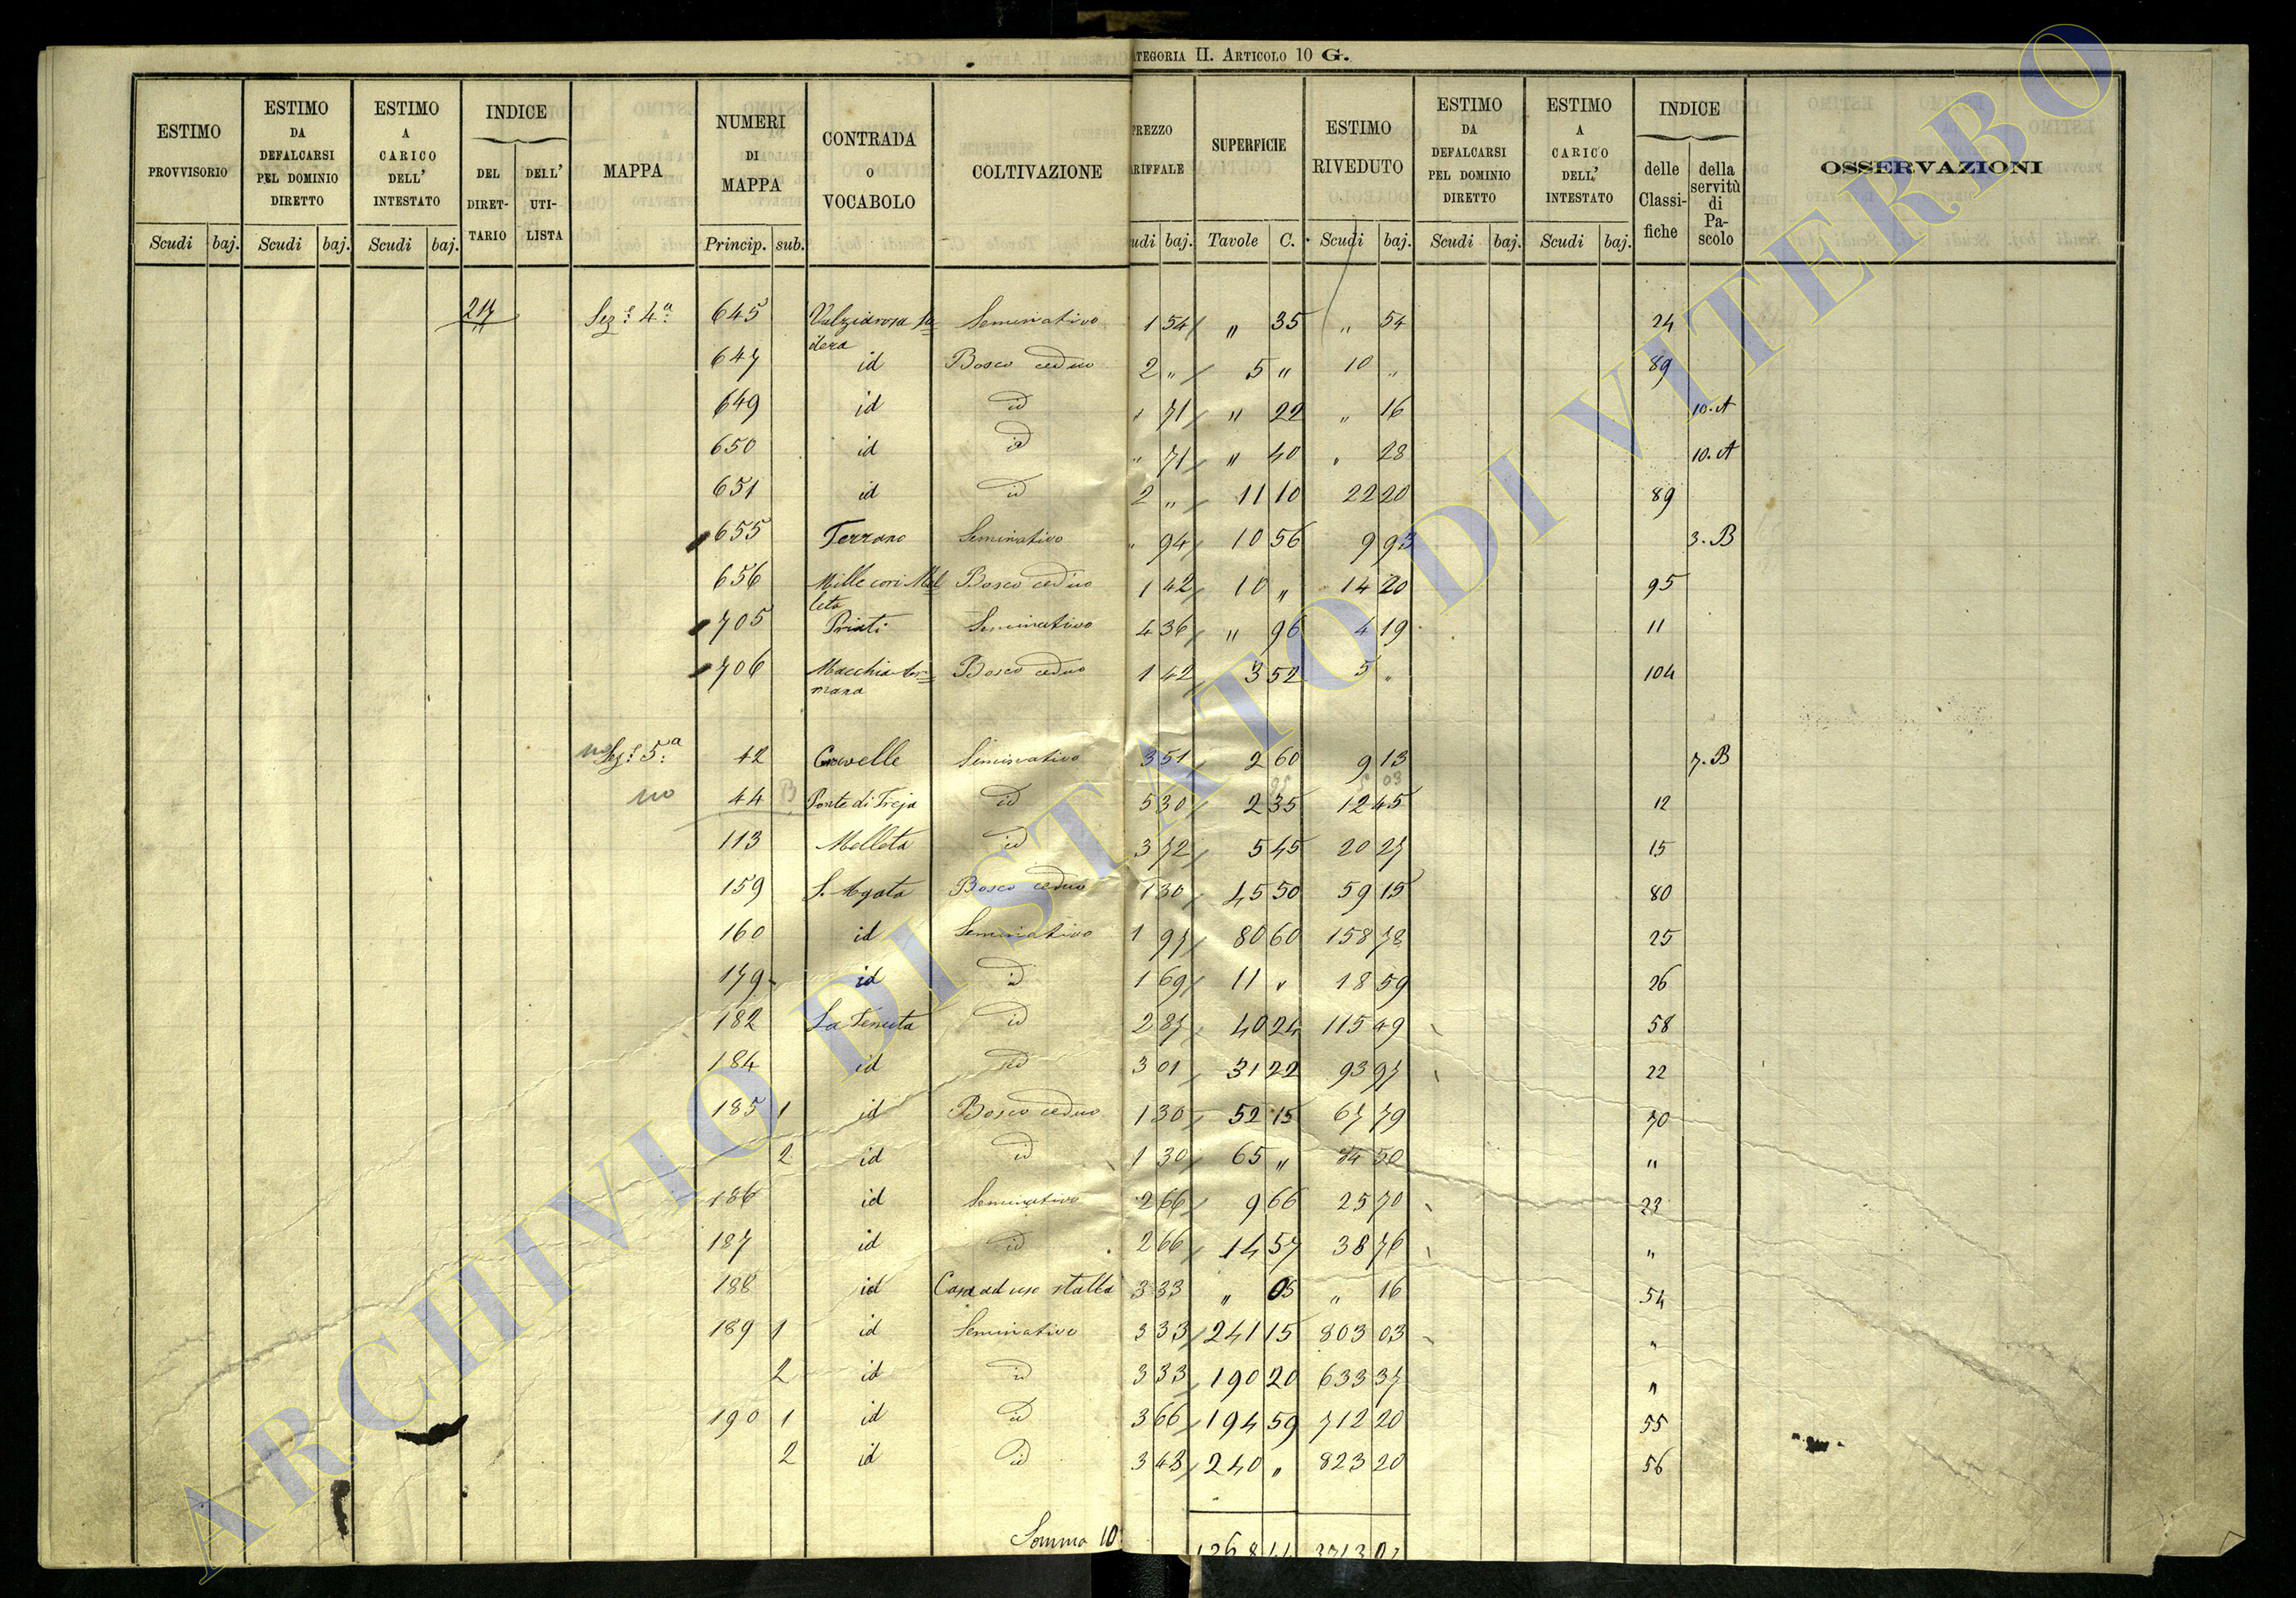 ATEGORIA II. ARTICOLO 10 G.
ESTIMO PROVVISORIO Scudi baj.
ESTIMO DA DEFALCARSI PEL DOMINIO DIRETTO Scudi baj.
ESTIMO A CARICO DELL' INTESTATO Scudi baj.
INDICE DEL DIRETTARIO DELL' UTILISTA
MAPPA
NUMERI DI MAPPA Princip. sub.
CONTRADA O VOCABOLO
COLTIVAZIONE
PREZZO ARIFFALE udi baj.
SUPERFICIE Tavole C.
ESTIMO RIVEDUTO Scudi baj.
ESTIMO DA DEFALCARSI PEL DOMINIO DIRETTO Scudi baj.
ESTIMO A CARICO DELL' INTESTATO Scudi baj.
INDICE delle Classifiche della servitù di Pascolo
OSSERVAZIONI
217 Sez.e 4a 645 Seminativo 1 54 " 35 " 54 24
647 id Bosco ceduo 2 " 5 " 10 " 89
649 id id " 71 " 22 " 16 10. A
650 id id " 71 " 40 " 28 10. A
651 id id 2 " 11 10 22 20 89
655 Terrano Seminativo " 94 10 56 9 93 3. B
656 Mille cori Mel= leta Bosco ceduo 1 42 10 " 14 20 95
705 Priati Seminativo 4 36 " 96 4 19 11
706 Macchia Bosco ceduo 1 42 3 52 5 " 104
no Sez.e 5a 42 Cravelle Seminativo 3 51 2 60 9 13 7. B
no 44 B Ponte di Treja id 5 30 2 35 12 45 12
113 Melleta id 3 72 5 45 20 27 15
159 S. Agata Bosco ceduo 1 30 45 50 59 15 80
160 id Seminativo 1 97 80 60 158 78 25
179 id id 1 69 11 " 18 59 26
182 La Tenuta id 2 87 40 24 115 49 58
184 id id 3 01 31 22 93 97 22
185 1 id Bosco ceduo 1 30 52 15 67 79 70
2 id id 1 30 65 " 84 50 "
186 id Seminativo 2 66 9 66 25 70 23
187 id id 2 66 14 57 38 76 "
188 id Casa ad uso stalla 3 33 " 05 " 16 54
189 1 id Seminativo 3 33 241 15 803 03 "
2 id id 3 33 190 20 633 37 "
190 1 id id 3 66 194 59 712 20 55
2 id id 3 43 240 " 823 20 56
Somma 10
ARCHIVIO DI STATO DI VITERBO